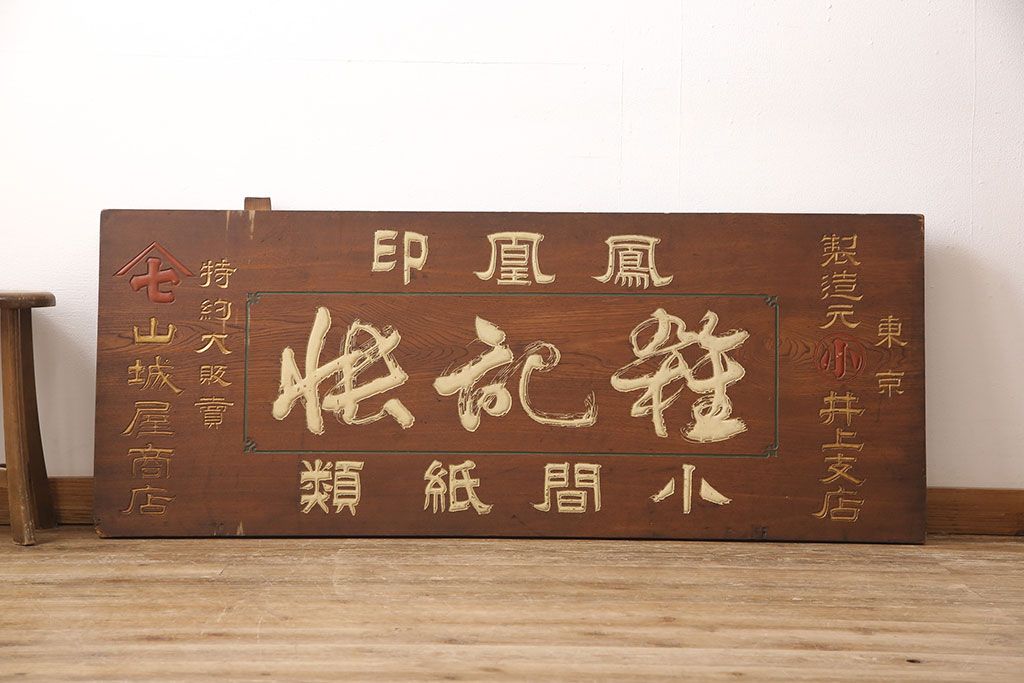 鳳凰印
雜記帳
小間紙類
東京
製造元
小
井上支店
特約大販賣
七
山城屋商店